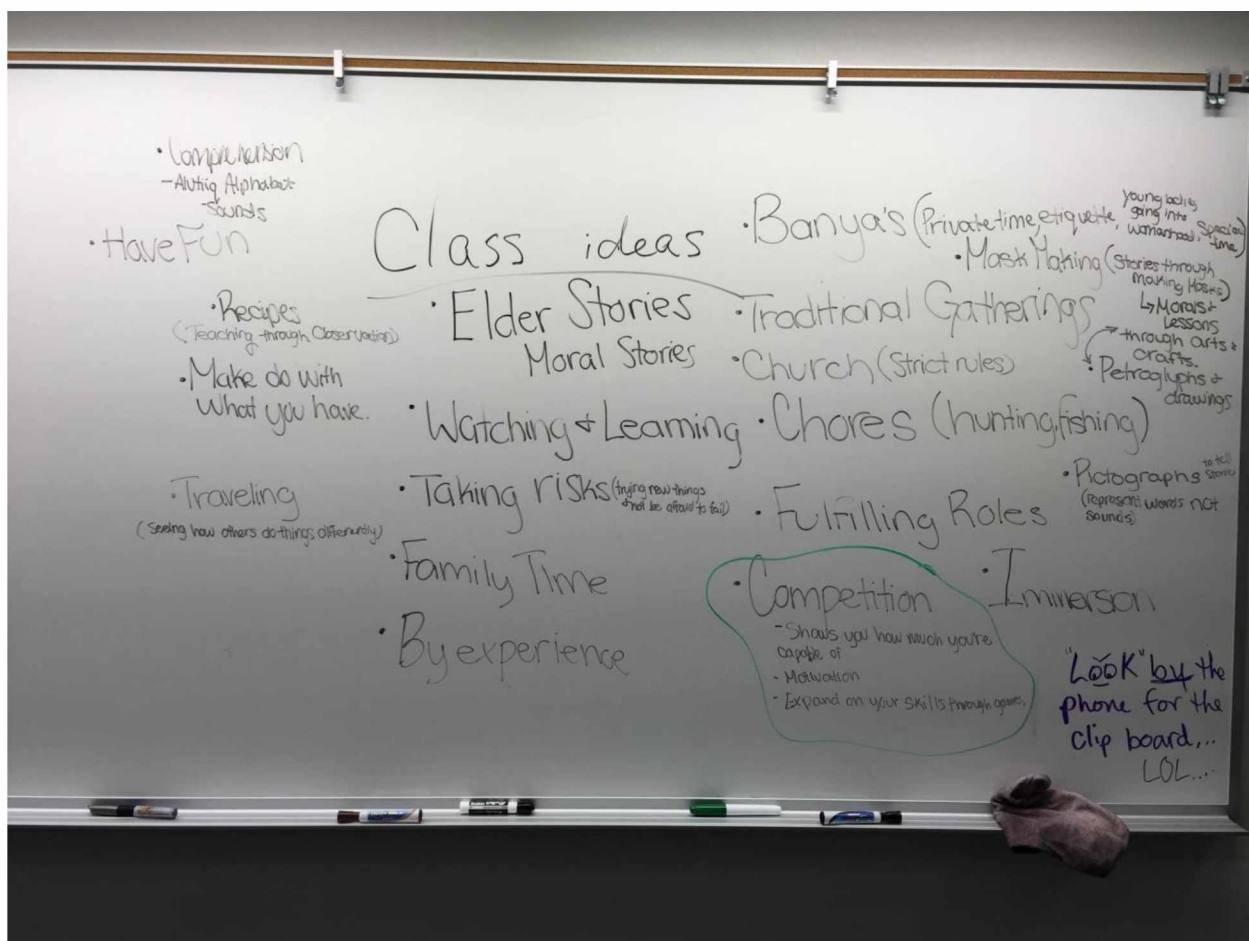 • Comprehension
- Alutiiq Alphabet
- Sounds
• Have Fun
• Recipes
(Teaching through Observation)
• Make do with
what you have.
• Traveling
(Seeing how others do things differently)
Class ideas
• Elder Stories
Moral Stories
• Watching + Learning
• Taking risks (trying new things
+ not be afraid to fail)
• Family Time
• By experience
• Banya's (Private time, etiquette,
young ladies
going into
womanhood,
Special
time)
• Mask Making (Stories through
making Masks)
↳ Morals +
Lessons
through arts +
crafts.
• Petroglyphs +
drawings
• Traditional Gatherings
• Church (Strict rules)
• Chores (hunting, fishing)
• Pictographs to tell
stories
(represent words not
sounds)
• Fulfilling Roles
• Competition
- Shows you how much you're
capable of
- Motivation
- Expand on your skills through games.
• Immersion
"Look" by the
phone for the
clip board,...
LOL....